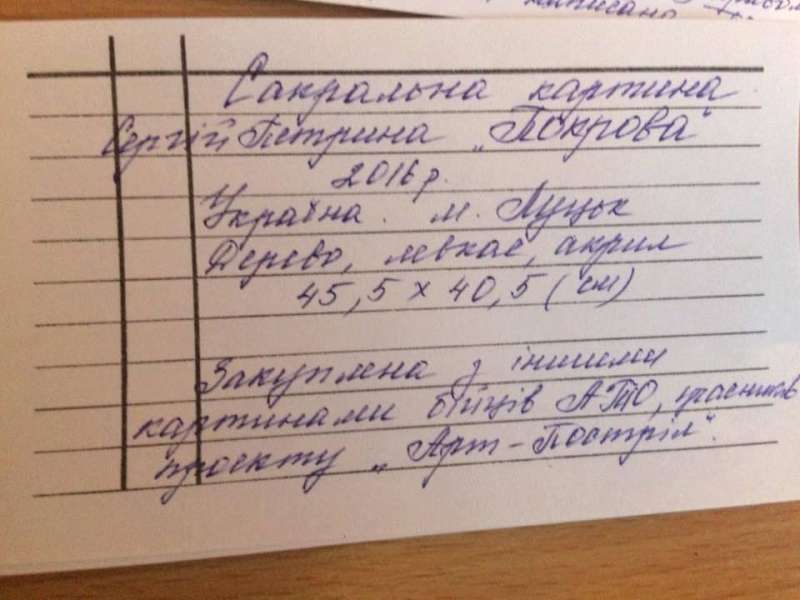 написано
Сакральна картина
Сергій Петрина „Покрова"
2016 р.
Україна. м. Луцьк
Дерево, левкас, акрил
45,5 х 40,5 (см)
Закуплена з іншими
картинами бійців АТО, учасників
проекту „Арт-Постріл".